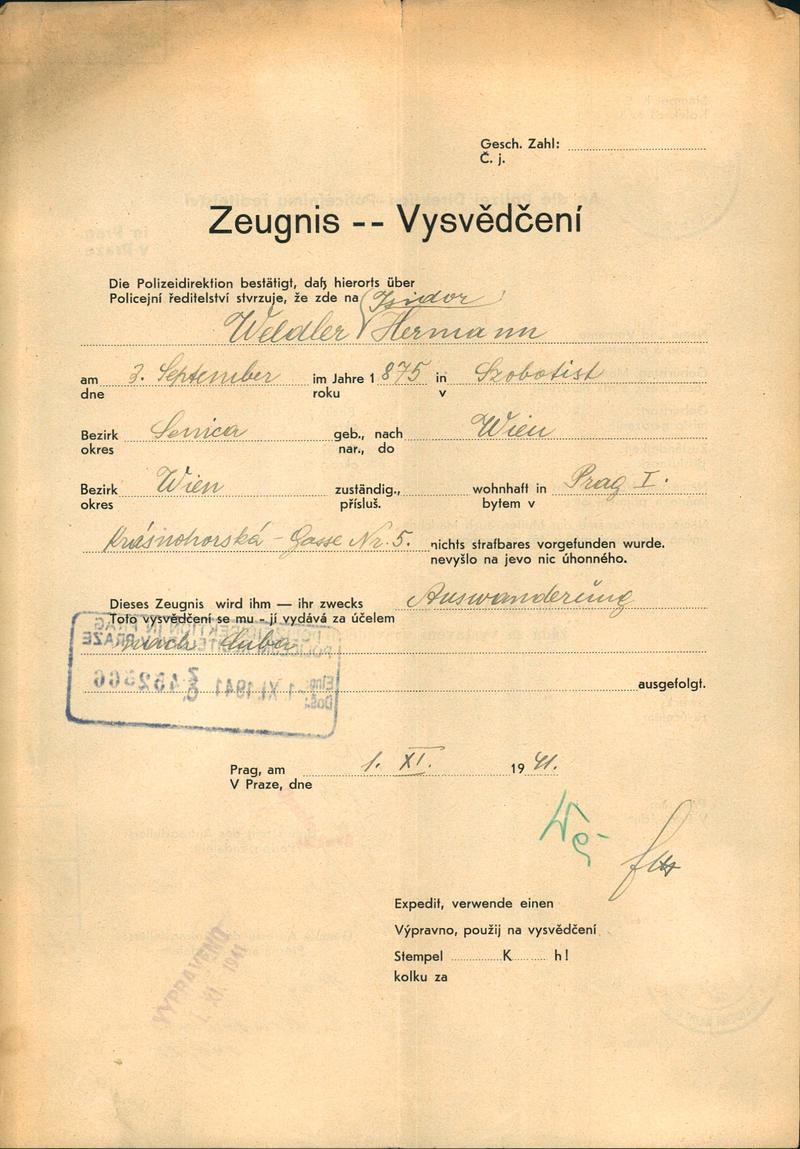 Gesch. Zahl:
Č. j.
Zeugnis -- Vysvědčení
Die Polizeidirektion bestätigt, daß hierorts über
Policejní ředitelství stvrzuje, že zde na (Isidor)
Weldler Hermann
am 3. September im Jahre 1875 in Szobotist
dne roku v
Bezirk Senica geb., nach Wien
okres nar., do
Bezirk Wien zuständig., wohnhaft in Prag I.
okres přísluš. bytem v
Krásnohorská-Gasse Nr. 5. nichts strafbares vorgefunden wurde.
nevyšlo na jevo nic úhonného.
Dieses Zeugnis wird ihm — ihr zwecks Auswanderung
Toto vysvědčení se mu - jí vydává za účelem
nach Cuba
ausgefolgt.
Prag, am 1. XI. 1941.
V Praze, dne
Expedit, verwende einen
Výpravno, použij na vysvědčení
Stempel K h!
kolku za
VYPRAVENO
1. XI. 1941